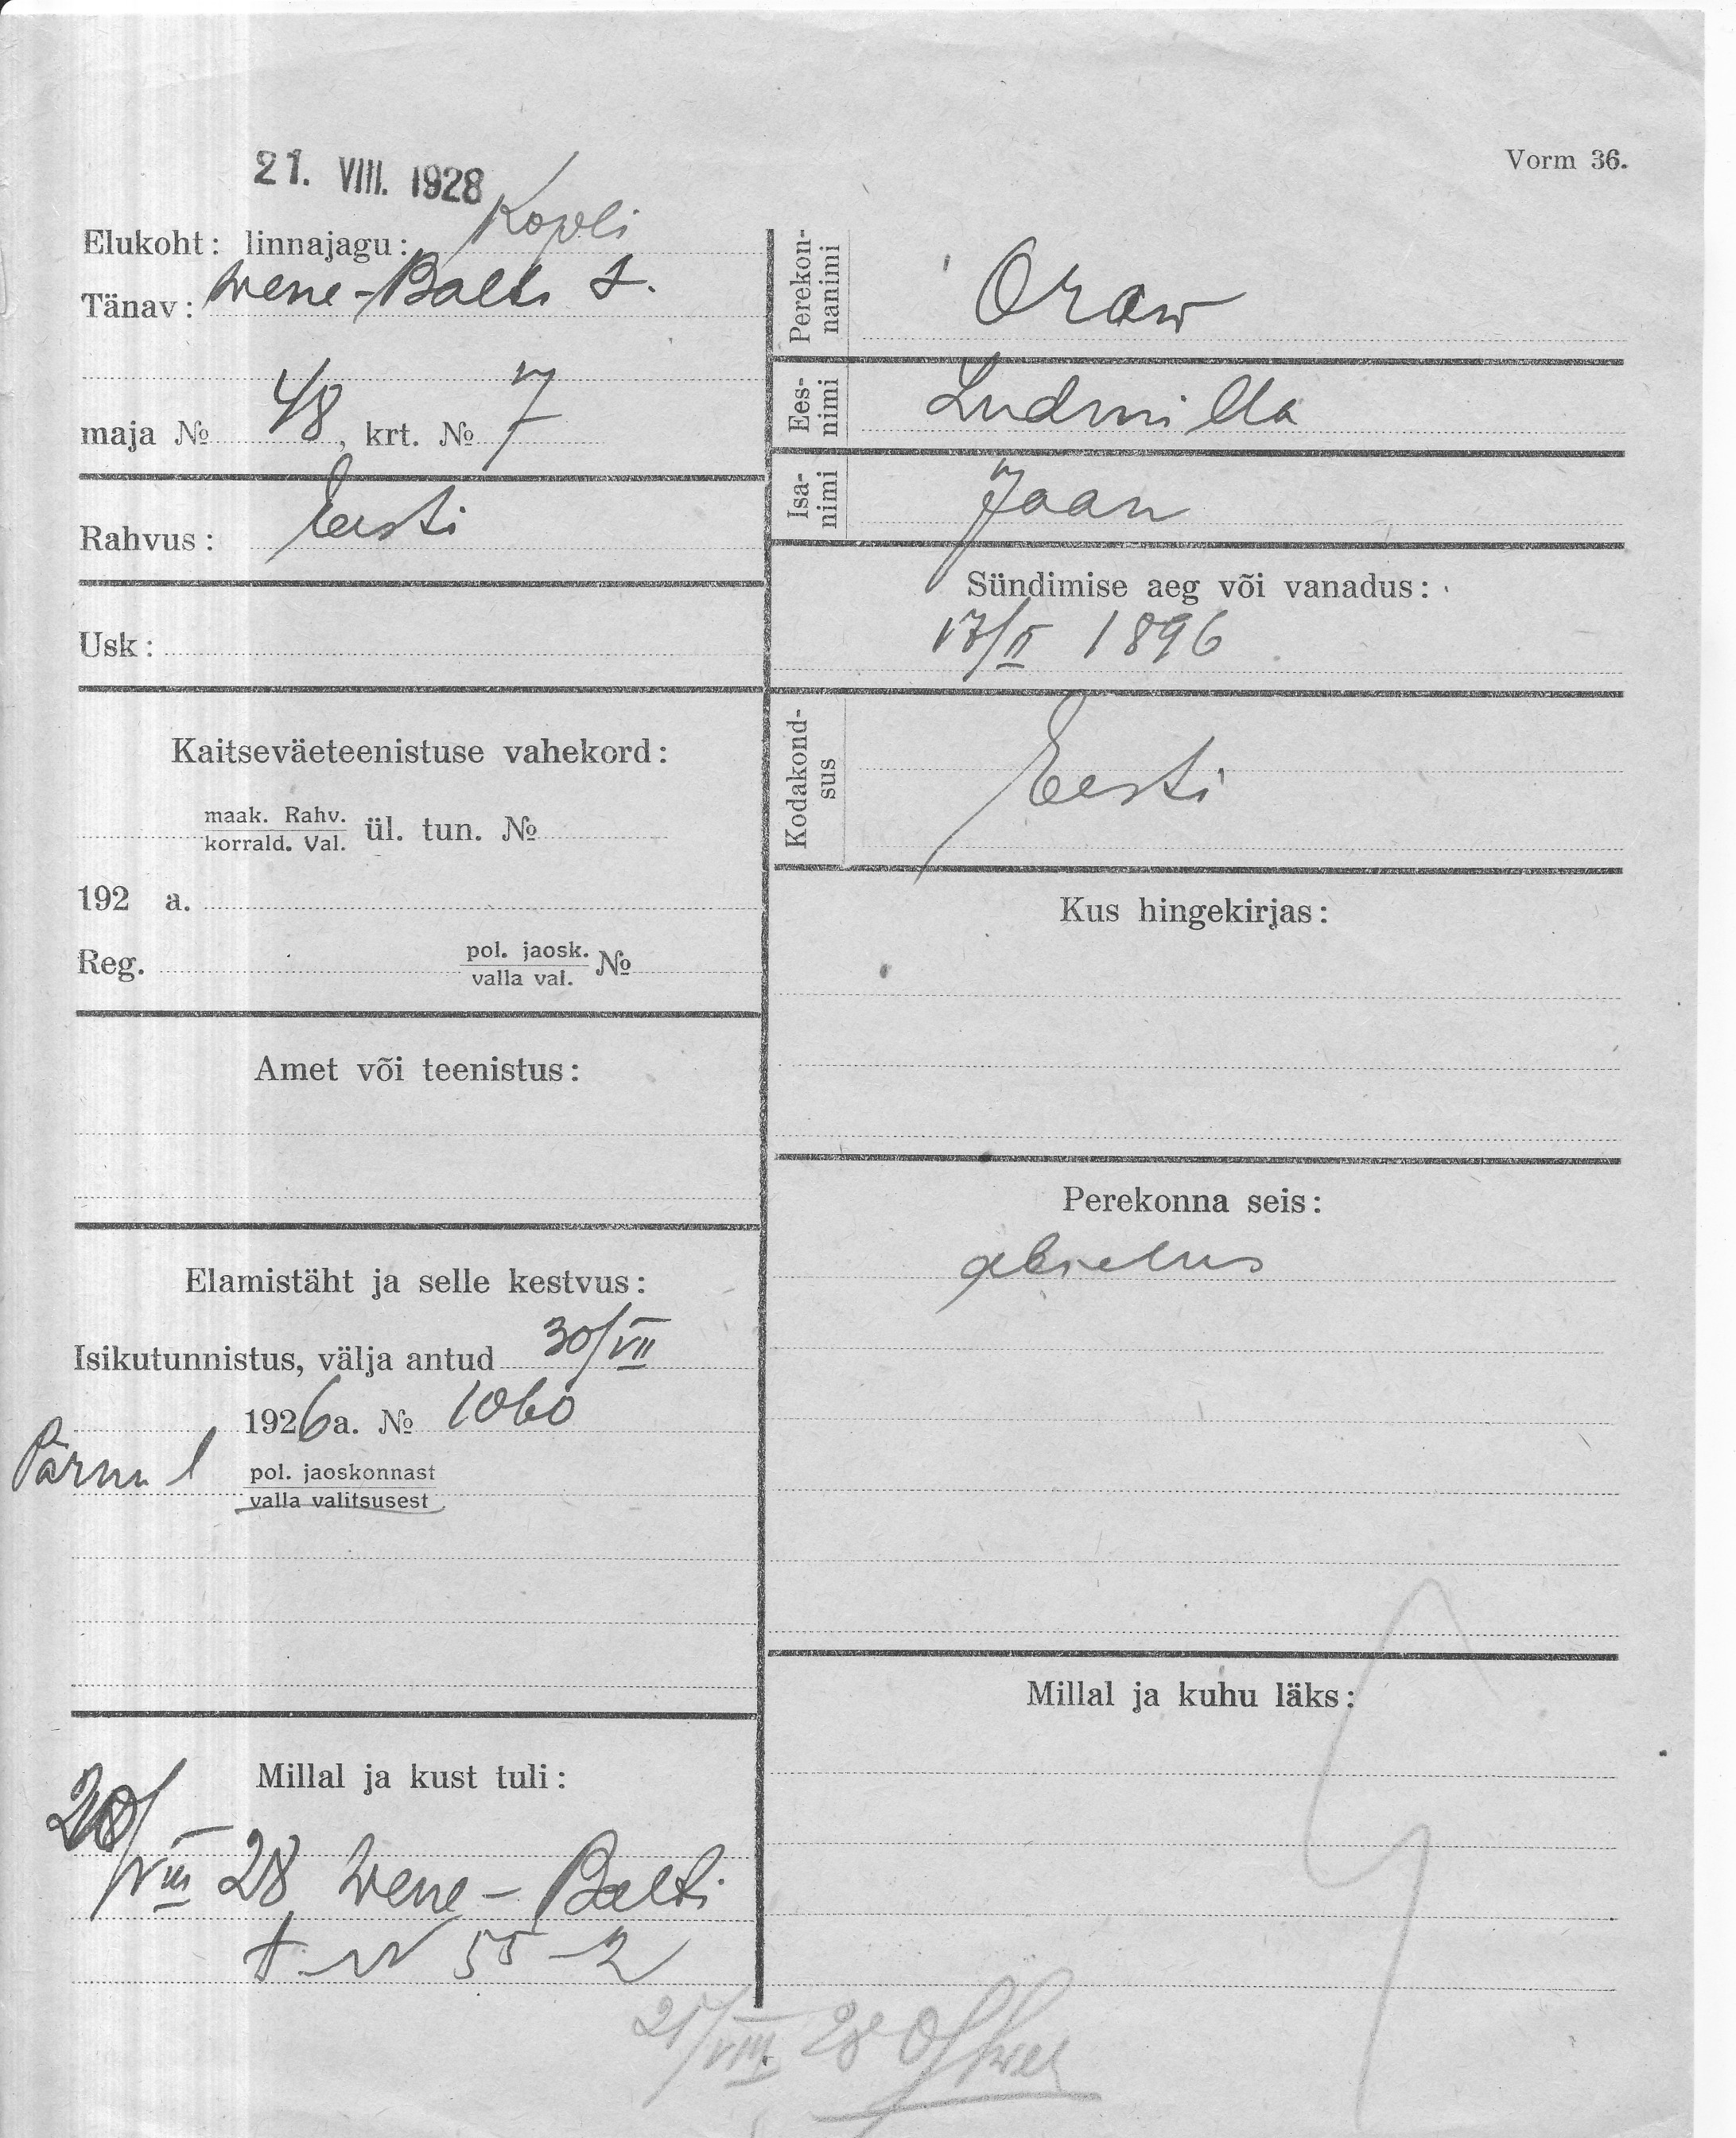 21. VIII. 1928
Vorm 36.
Elukoht: linnajagu: Kopli
Tänav: Wene-Balti t.
maja № 48, krt. № 7
Rahvus: Eesti
Usk:
Kaitseväeteenistuse vahekord:
maak. Rahv.
korrald. Val. ül. tun. №
192 a.
Reg. pol. jaosk.
valla val. №
Amet või teenistus:
Elamistäht ja selle kestvus:
Isikutunnistus, välja antud 30/VII
1926 a. № 1060
Pärnu l pol. jaoskonnast
valla valitsusest
Millal ja kust tuli:
20/VIII 28 Wene-Balti
t. N 55-2
Perekon-
nanimi Oraw
Ees-
nimi Ludmilla
Isa-
nimi Jaan
Sündimise aeg või vanadus:
17/II 1896
Kodakond-
sus Eesti
Kus hingekirjas:
Perekonna seis:
abielus
Millal ja kuhu läks:
21/VIII. 28